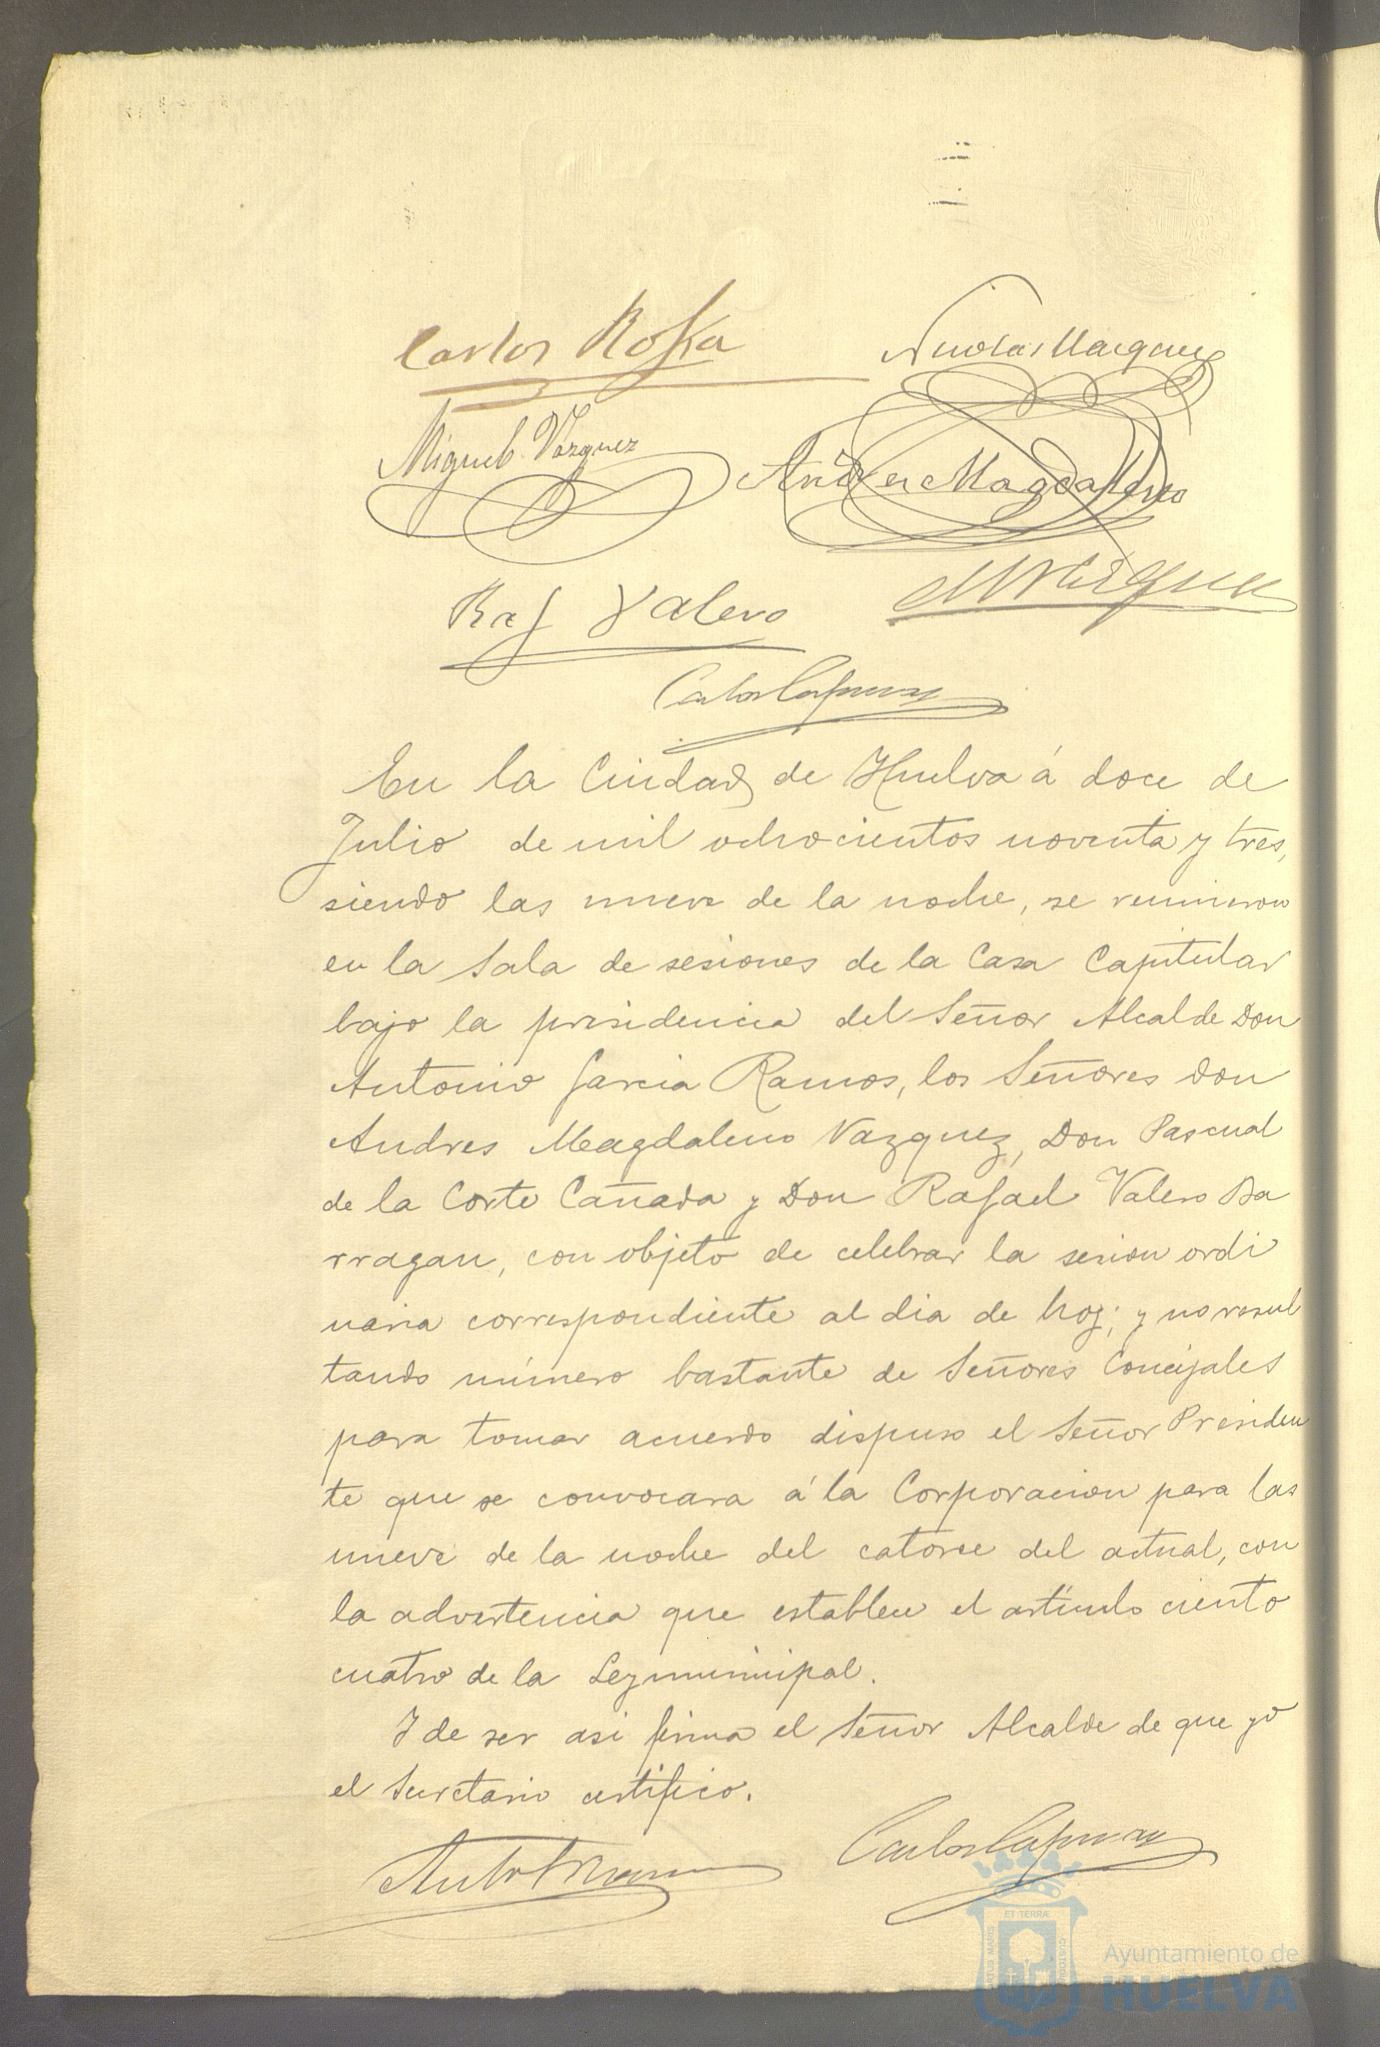 Carlos Rofa
Nicolas Marquez
Miguel Vazquez
Andres Magdaleno
Raf Valero
En la Ciudad de Huelva á doce de
Julio de mil ochocientos noventa y tres,
siendo las nueve de la noche, se reunieron
en la Sala de sesiones de la Casa Capitular
bajo la presidencia del Señor Alcalde Don
Antonio Garcia Ramos, los Señores Don
Andres Magdaleno Vazquez, Don Pascual
de la Corte Cañada y Don Rafael Valero Ba
rragan, con objeto de celebrar la sesion ordi
naria correspondiente al dia de hoy; y no resul
tando número bastante de Señores Concejales
para tomar acuerdo dispuso el Señor Presiden
te que se convocara á la Corporacion para las
nueve de la noche del catorce del actual, con
la advertencia que establece el artículo ciento
cuatro de la Ley municipal.
Y de ser asi firma el Señor Alcalde de que yo
el Secretario certifico.
ET TERRÆ
Ayuntamiento de
HUELVA